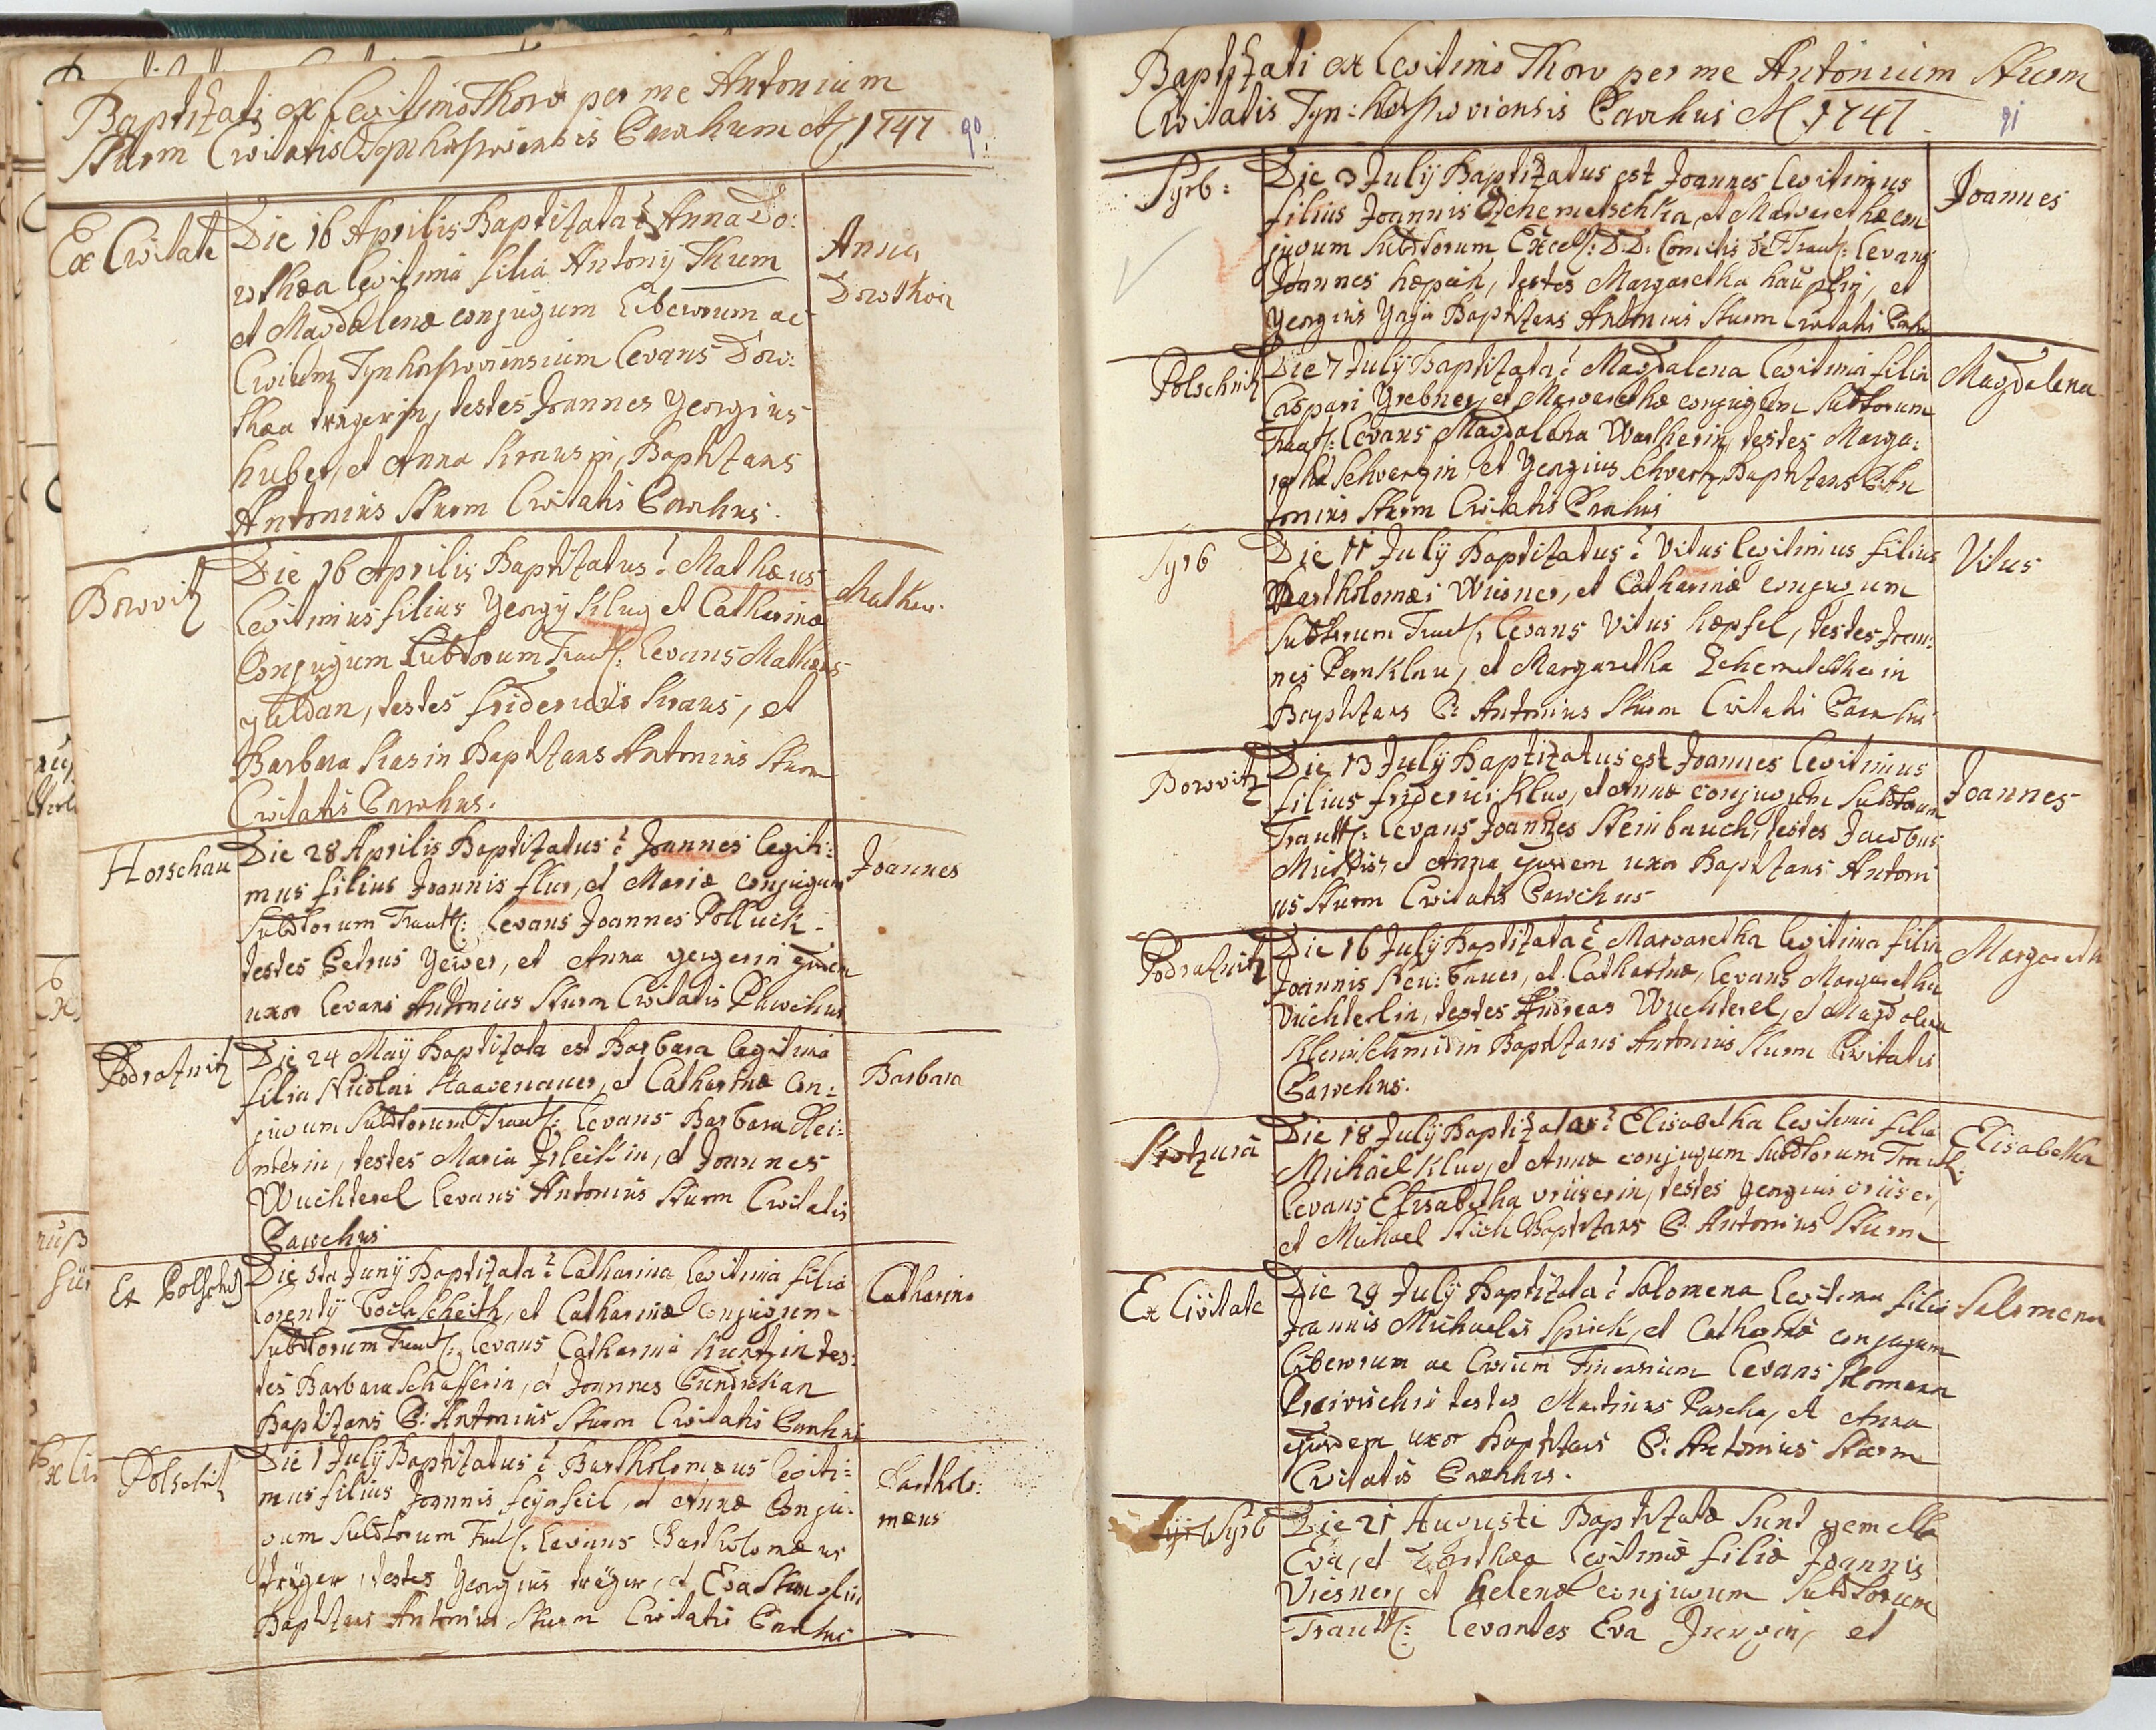 Baptizati ex Legitimo Thoro per me Antonium
Sturm Civitatis Tynhorssoviensis Parochum A 1747
90
Ex Civitate
Die 16 Aprilis Baptizata ē Anna Do:
rothæa legitima filia Antonij Thum
et Magdalenæ conjugum Liberorum ac
Civium Tynhorssoviensium Levans Doro:
thæa tragerin, testes Joannes Georgius
huber, et Anna Krausin, Baptizans
Antonius Sturm Civitatis Parochus.
Anna
Dorothea
Borovitz
Die 16 Aprilis Baptizatus ē Mathæus
Legitimus filius Georgij Klug et Catharinæ
Conjugum Subditorum Trautt: Levans Mathæus
testes fridericus Kraus, et
Barbara Baptizans Antonius Sturm
Civitatis Parochus.
Mathæus.
Horschau
Die 28 Aprilis Baptizatus ē Joannes legiti:
mus filius Joannis flur, et Mariæ Conjugum
Subditorum Trautt: Levans Joannes Polluck
testes Petrus Geiger, et Anna geigerin ejusdem
uxor Levans Antonius Sturm Civitatis Parochus
Joannes
Podraznitz
Die 24 Maÿ Baptizata est Barbara legitima
filia Nicolai Haavenauer, et Catharinæ Con:
jugum Subditorum Trautt: Levans Barbara
testes Maria et Joannes
Wuchterel Levans Antonius Sturm Civitatis
Parochus
Barbara
Ex Polschitz
Die 5ta Junÿ Baptizata ē Catharina legitima filia
Lorentÿ et Catharinæ Conjugum
Subditorum Trautt: Levans Catharina Kuntzin tes:
tes Barbara Schafferin, et Joannes
Baptizans P: Antonius Sturm Civitatis Parochus
Catharina
Polschitz
Die 1 Julÿ Baptizatus ē Bartholomæus legiti:
mus filius Joannis feÿrfeil, et Annæ Conju:
gum Subditorum Trautt: Levans Bartholomæus
träger, testes Georgius träger, et Eva
Baptizans Antonius Sturm Civitatis Parochus
Bartholo:
mæus
Baptizati ex Legitimo Thoro per me Antonium Sturm
Civitatis Tyn: horssoviensis Parochus A 1747
91
Syrb:
Die 3 Julij Baptizatus est Joannes legitimus
filius Joannis Tzchemerschka, et Margarethæ con
jugum Subditorum Excell: D:D: Comitis de Trautt: Levans
Joannes testes Margaretha hauptin, et
Georgius Baptizans Antonius Sturm Civitatis Paro
Joannes
Polschitz
Die 7 Julÿ Baptizata ē Magdalena legitima filia
Caspari Grebner, et Margarethæ conjugum Subditorum
Trautt: Levans Magdalena Wartherin, testes Marga:
retha Schvertzin, et Georgius Schvertz, Baptizans P: An
tonius Sturm Civitatis Parochus
Magdalena
Syrb
Die 11 Julÿ Baptizatus ē Vitus legitimus filius
Bartholomæi Wiesner, et Catharinæ conjugum
Subditorum Trautt: Levans Vitus hæpfel, testes Joan:
nes Pernklau, et Margaretha
Baptizans P: Antonius Sturm Civitatis Parochus
Vitus
Borovitz
Die 13 Julÿ Baptizatus est Joannes legitimus
filius friderici Klug, et Annæ conjugum Subditorum
Trautt: Levans Joannes Steinbauch, testes Jacobus
et Anna ejusdem uxor Baptizans Antoni
us Sturm Civitatis Parochus
Joannes
Podraznitz
Die 16 Julÿ Baptizata ē Margaretha legitima filia
Joannis Neu:bauer, et Catharinæ, Levans Margaretha
Vuchterlin, testes Andreas Wuchterel, et Magdalena
Kleinschmidin Baptizans Antonius Sturm Civitatis
Parochus.
Margaretha
Kotzura
Die 18 Julÿ Baptizata ē Elisabetha legitima filia
Michael Klug, et Annæ conjugum Subditorum Trautt:
Levans Elisabetha testes Georgius
et Michael Stich Baptizans P: Antonius Sturm
Elisabetha
Ex Civitate
Die 29 Julÿ Baptizata ē Salomena legitima filia
Joannis Michaelis Spirck, et Catharinæ conjugum
Liberorum ac Civium Tinensium Levans Salomena
testes Martinus Pascha, et Anna
ejusdem uxor Baptizans P: Antonius Sturm
Civitatis Parochus.
Salomena
Syrb
Die 21 Augusti Baptizatæ sunt gemellæ
Eva, et Dorothæa legitimæ filiæ Joannis
Viesner, et helenæ conjugum Subditorum
Trautt: Levantes Eva et